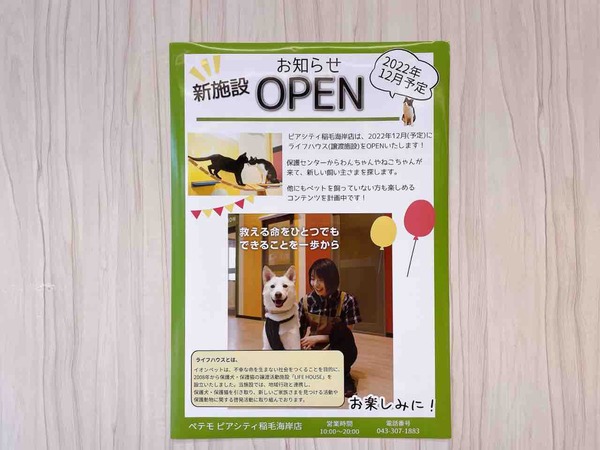 お知らせ
2022年
12月予定
新施設
OPEN
ピアシティ稲毛海岸店は、2022年12月(予定)に
ライフハウス(譲渡施設)をOPENいたします！
保護センターからわんちゃんやねこちゃんが
来て、新しい飼い主さまを探します。
他にもペットを飼っていない方も楽しめる
コンテンツを計画中です！
救える命をひとつでも
できることを一歩から
ライフハウスとは、
イオンペットは、不幸な命を生まない社会をつくることを目的に、
2008年から保護犬・保護猫の譲渡活動施設「LIFE HOUSE」を
設立いたしました。当施設では、地域行政と連携し、
保護犬・保護猫を引き取り、新しいご家族さまを見つける活動や
保護動物に関する啓発活動に取り組んでおります。
お楽しみに！
ペテモ ピアシティ稲毛海岸店
営業時間
10:00～20:00
電話番号
043-307-1883